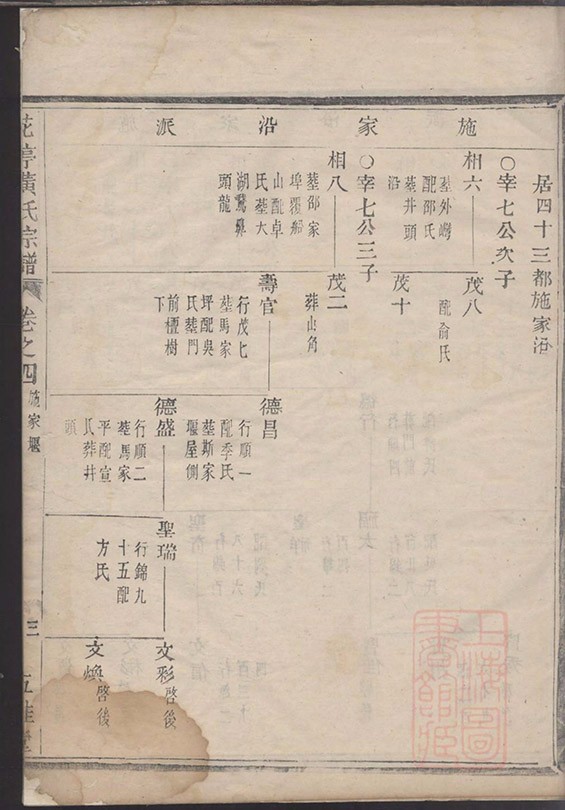 施家沿派
居四十三都施家沿
○宰七公次子
相六
葬外嶴
配邵氏
葬井頭
沿
茂八
配俞氏
茂十
○宰七公三子
相八
葬邵家
埠覆船
山配卓
氏葬大
湖鵞鼻
頭龍
茂二
葬山角
壽官
行茂七
葬馬家
坪配吳
氏葬門
前櫃樹
下
德昌
行順一
配季氏
葬斯家
堰屋側
德盛
行順二
葬馬家
平配宣
氏葬井
頭
聖瑞
行錦九
十五配
方氏
文彩啓後
文煥啓後
花亭黃氏宗譜
卷之四
施家堰
三
上海圖
書館藏